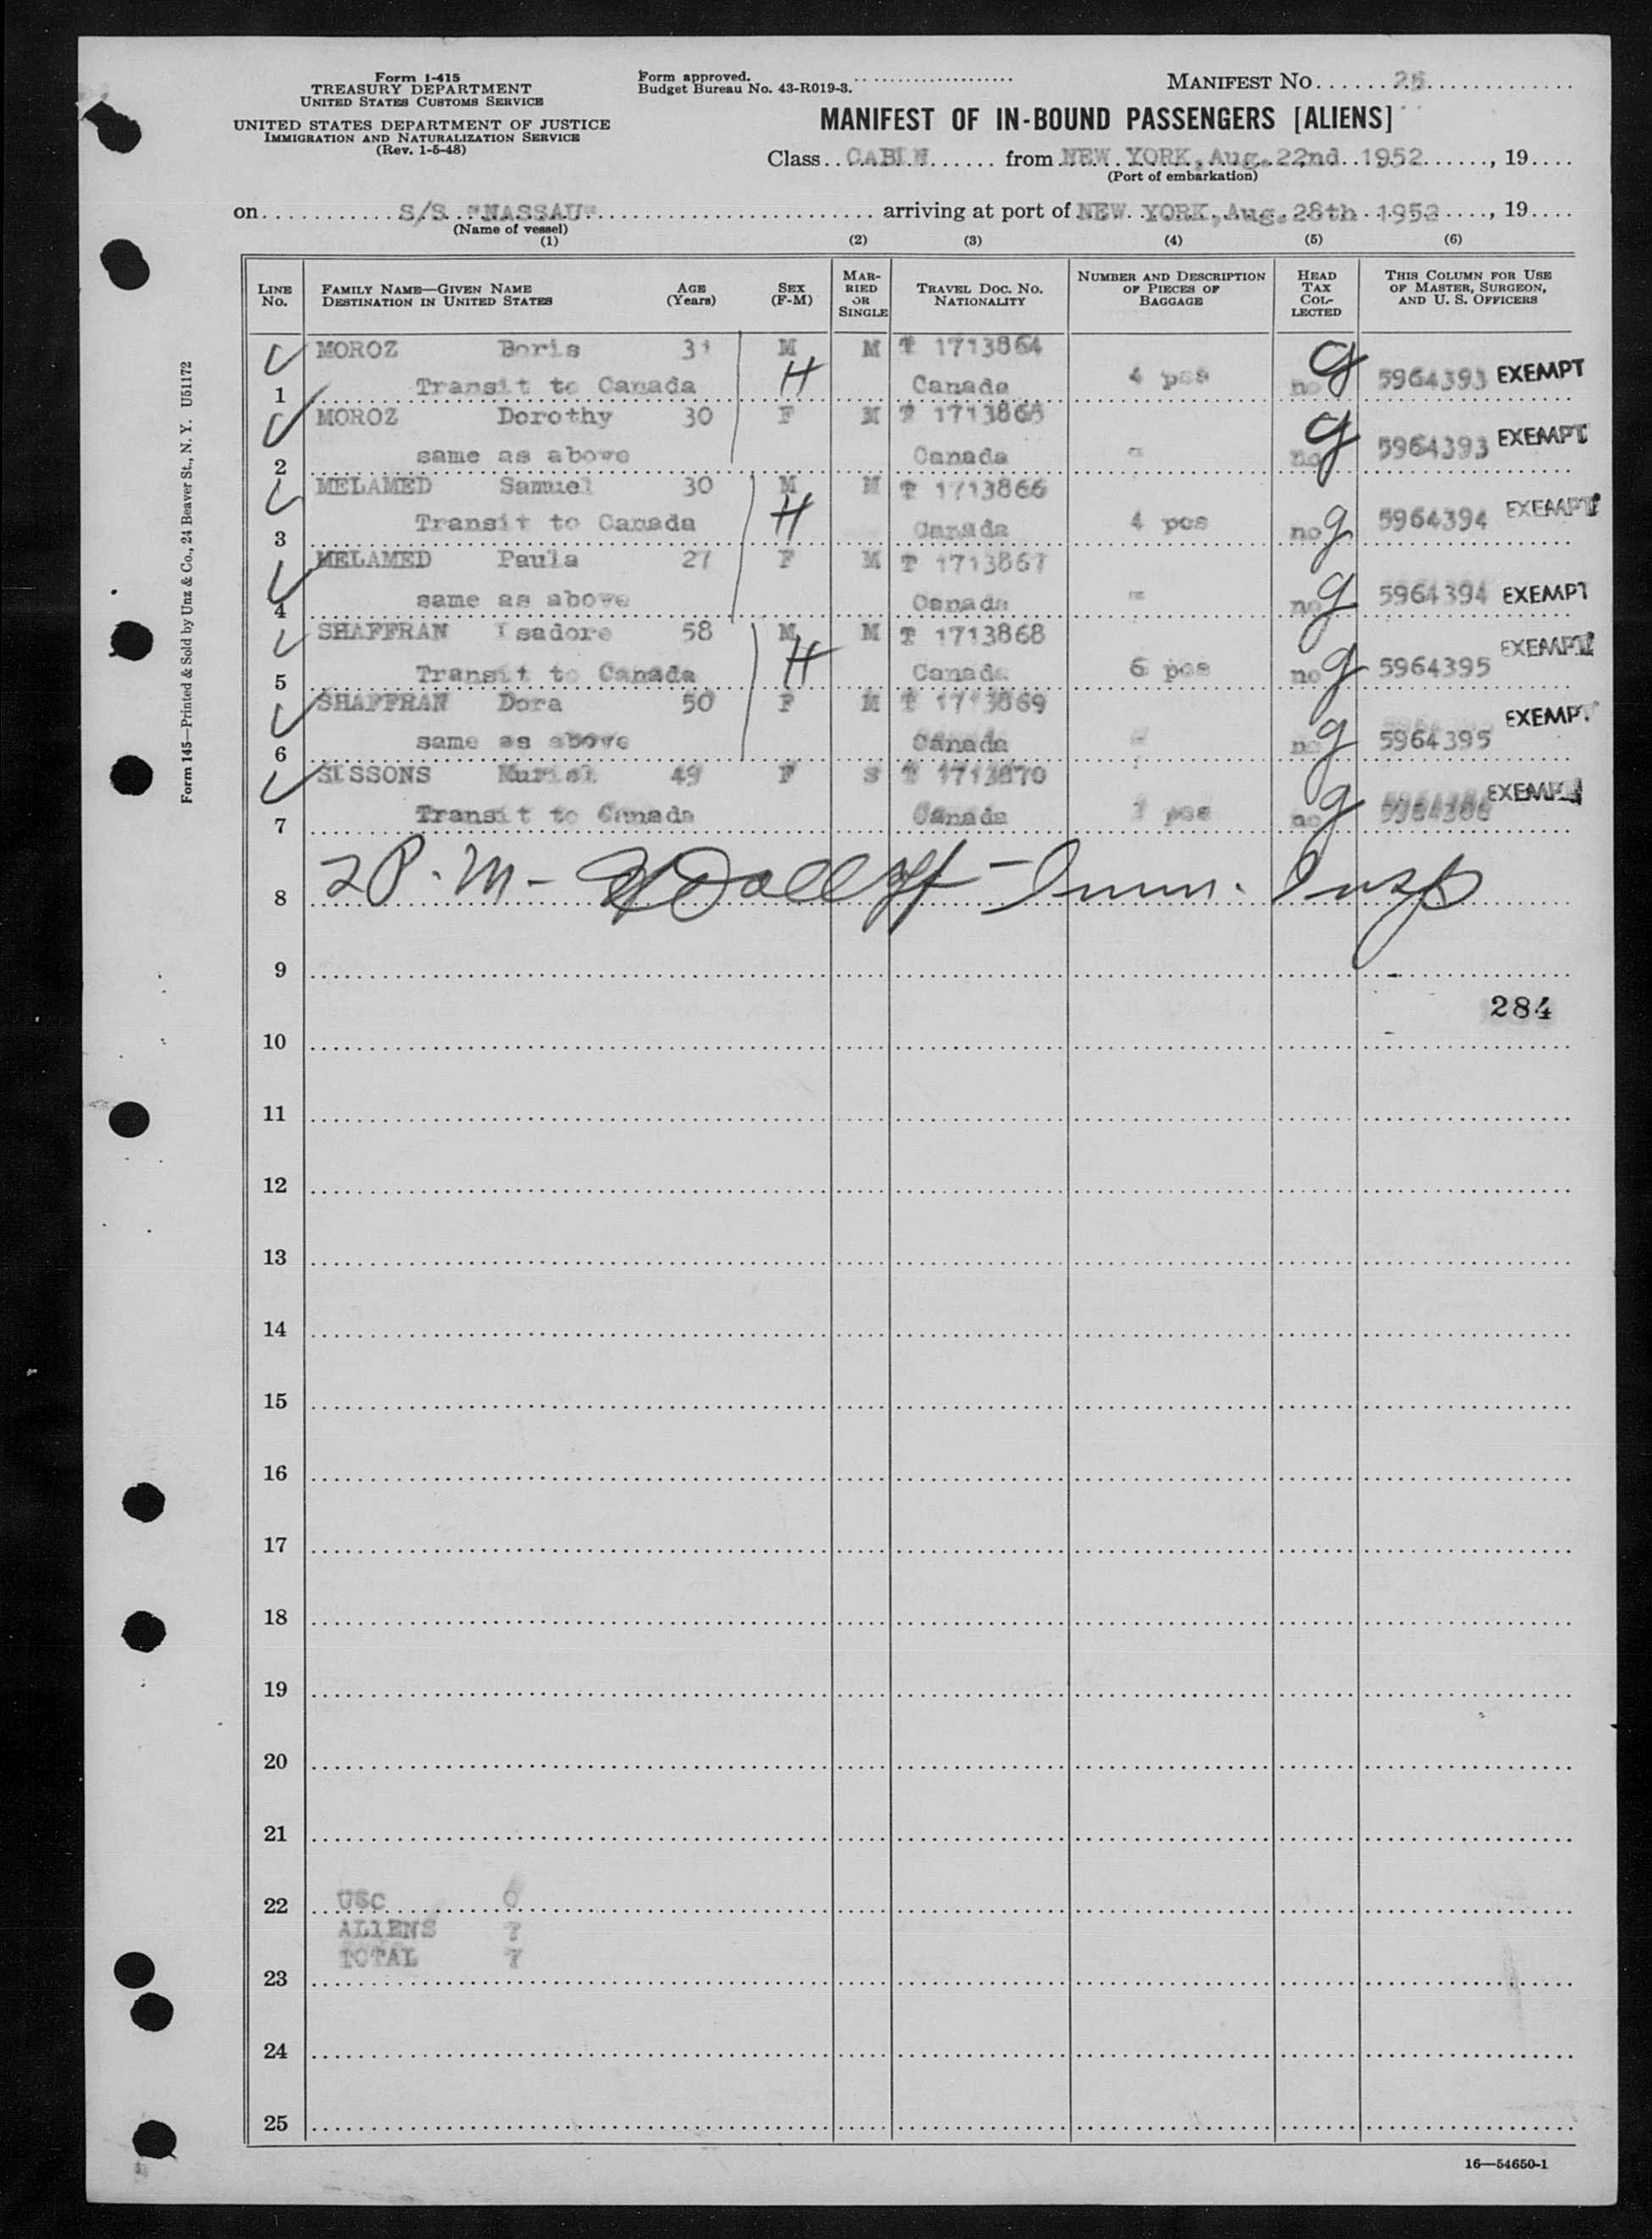 Form I-415
TREASURY DEPARTMENT
UNITED STATES CUSTOMS SERVICE
UNITED STATES DEPARTMENT OF JUSTICE
IMMIGRATION AND NATURALIZATION SERVICE
(Rev. 1-5-48)
Form approved.
Budget Bureau No. 43-R019-3.
MANIFEST NO. 25
MANIFEST OF IN-BOUND PASSENGERS [ALIENS]
Class CABIN from NEW YORK, Aug. 22nd 1952, 19
(Port of embarkation)
on S/S "NASSAU" arriving at port of NEW YORK, Aug. 28th 1952, 19
(Name of vessel)
(1) (2) (3) (4) (5) (6)
LINE NO. FAMILY NAME—GIVEN NAME DESTINATION IN UNITED STATES AGE (Years) SEX (F-M) MARRIED OR SINGLE TRAVEL DOC. NO. NATIONALITY NUMBER AND DESCRIPTION OF PIECES OF BAGGAGE HEAD TAX COLLECTED THIS COLUMN FOR USE OF MASTER, SURGEON, AND U. S. OFFICERS
MOROZ Boris 31 M M T 1713864
1 Transit to Canada H Canada 4 pcs no g 5964393 EXEMPT
MOROZ Dorothy 30 F M T 1713865
2 same as above Canada " no g 5964393 EXEMPT
MELAMED Samuel 30 M M T 1713866
3 Transit to Canada H Canada 4 pcs no g 5964394 EXEMPT
MELAMED Paula 27 F M T 1713867
4 same as above Canada " no g 5964394 EXEMPT
SHAFFRAN Isadore 58 M M T 1713868
5 Transit to Canada H Canada 6 pcs no g 5964395 EXEMPT
SHAFFRAN Dora 50 F M T 1713869
6 same as above Canada " no g 5964395 EXEMPT
SISSONS Muriel 49 F S T 1713870
7 Transit to Canada Canada pcs no g EXEMPT
8 2 P.M - Imm. Insp
9
284
10
11
12
13
14
15
16
17
18
19
20
21
22 USC 0
ALIENS 7
TOTAL 7
23
24
25
16—54650-1
Form 145—Printed & Sold by Unz & Co., 24 Beaver St., N. Y. U51172